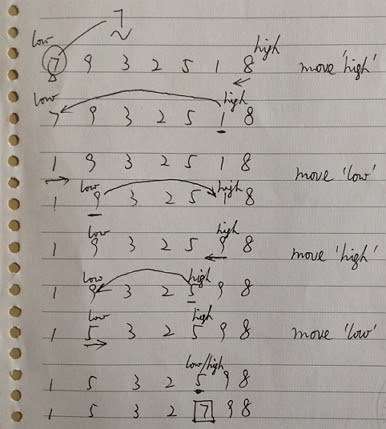 7
low high
7 9 3 2 5 1 8 move 'high'
low high
7 9 3 2 5 1 8
1 9 3 2 5 1 8 move 'low'
low high
1 9 3 2 5 1 8
low high
1 9 3 2 5 9 8 move 'high'
low high
1 9 3 2 5 9 8
low high
1 5 3 2 5 9 8 move 'low'
low/high
1 5 3 2 5 9 8
1 5 3 2 7 9 8